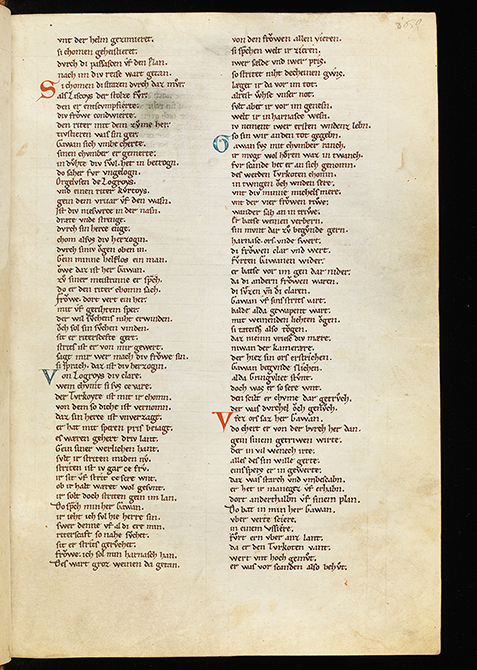 mit der helm gezimieret.
si chomen geheistieret.
durch di passasen vf den plan.
nach im div reise wart getan.
Si chomen di strazzen durch daz mvͦr.
als Liscoys der stolze fvͦr.
den er ensimpfierte.
div frowe condwierte.
den riter mit dem zovme her.
tivstieren was sin ger.
Gawan sich vmbe cherte.
sinen chumber er gemerte.
in dvhte div svͦl. het in betrogn.
do saher fvr vngelogn.
Orgelvsen de Logroys.
vnd einen riter kvrtoys.
gein dem vrvar vf den wasn.
ist div niesworz in der nasn.
dræte vnde strenge.
durch sin herce enge.
chom alsvs div herzogin.
durch siniv ovgen oben in.
Gein minne helflos ein man.
owe daz ist her Gawan.
zv siner meisterinne er sprch.
do er den riter chomn sach.
frowe. dort vert ein her.
mit vf gerihtem sper.
der wil svchens niht erwinden.
och sol sin svchen vinden.
sit er riterscefte gert.
strits ist er von mir gewert.
sagt mir wer mach div frowe sin.
si sprach. daz ist div herzogin.
Von Logroys div clare.
wem chumt si svs ce vare.
der Tvrkoyte ist mit ir chomn.
von dem so dicke ist vernomn.
daz sin herce ist vnverzagt.
er hat mit speren pris beiagt.
es wæren geheret driv lant.
Gein siner werlichen hant.
svlt ir striten miden nv.
striten ist iv gar ce frv.
ir sit vf strit ce sere wnt.
ob ir halt wæret wol gesvnt.
ir solt doch striten gein im lan.
Do sprch min her Gawan.
ir ieht ich svl hie herre sin.
swer denne vf al di ere min.
riterscaft so nahe svchet.
sit er strits gervchet.
frowe. ich sol min harnasch han.
Des wart groz weinen da getan.
von den frowen allen vieren.
si sprchen welt ir zieren.
iwer selde vnd iwer pris.
so stritet niht decheinen wis.
læger ir da vor im tot.
alrest whse vnser not.
svlt aber ir vor im genesn.
welt ir in harnasce wesn.
iv nement iwer ersten wndenz lebn.
so sin wir anden tot gegebn.
Gawan svs mit chumber ranch.
ir mvgt wol hören waz in twanch.
fvr scande het er an sich genomn.
des werden Tvrkoten chomn.
in twngen och wnden sere.
vnt div minne michels mere.
vnt der vier frowen riwe.
wander sah an in triwe.
er batse weinen verbern.
sin mvnt dar zv begvnde gern.
harnasc. ors. vnde swert.
di frowen clar vnd wert.
fvrten Gawanen wider.
er batse vor im gen dar nider.
da di andern frowen waren.
di svzen vn di claren.
Gawan vf sins strits vart.
balde alda gewapent wart.
mit weinenden liehten ovgen.
si tatens also tovgen.
daz niemn vriesc div mære.
niwan der kamerære.
der hiez sin ors erstrichen.
Gawan begvnde slichen.
alda Gringvliet stvnt.
doch was er so sere wnt.
den scilt er chvme dar getrvch.
der was dvrchel och genvch.
Vfez ors saz her Gawan.
do chert er von der bvrch her dan.
gein sinem getriwen wirte.
der in vil wenech irte.
alles des sin wille gerte.
eins spers er in gewerte.
daz was starch vnd vnbescabn.
er het ir manegez vf erhabn.
dort anderhalbn vf sinem plan.
Do bat in min her Gawan.
vber verte sciere.
in einem vssiere.
fvrt ern vber anz lant.
da er den Tvrkoten vant.
wert vnt hoch gemvt.
er was vor scanden also behvt.